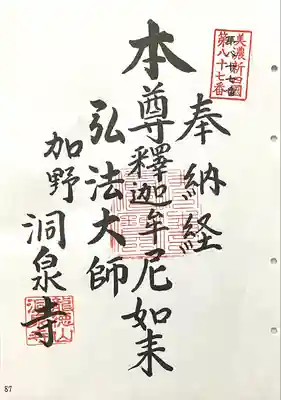 美濃新四國
第八十七番
奉納経
本尊釋迦牟尼如来
弘法大師
加野 洞泉寺
87